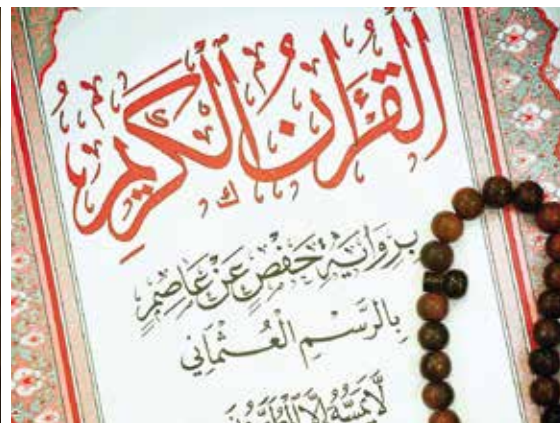 القُرْآنُ الكَرِيمُ
بِرِوَايَةِ حَفْصٍ عَنْ عَاصِمٍ
بِالرَّسْمِ العُثْمَانِي
لَّا يَمَسُّهُ إِلَّا الْمُطَهَّرُونَ